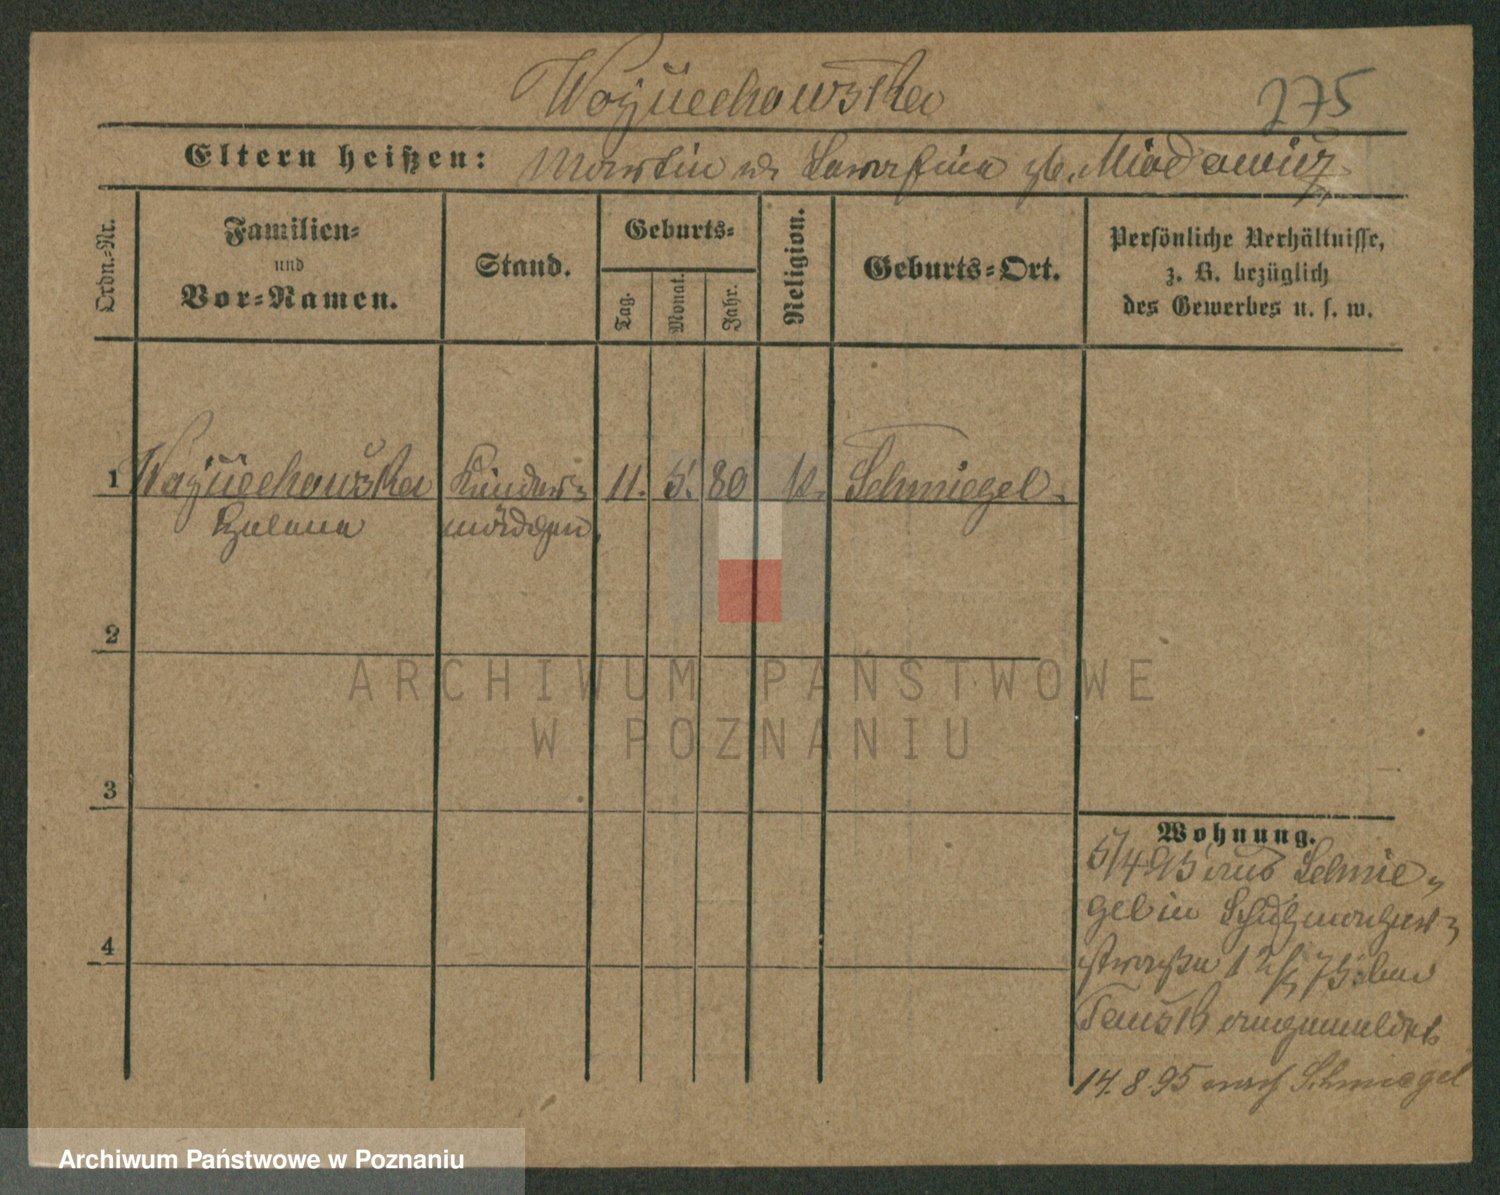 Wojciechowska
275
Eltern heißen: Martin u. Serafine
Ordn.-Nr.
Familien-
und
Vor-Namen.
Stand.
Geburts-
Tag.
Monat.
Jahr.
Religion.
Geburts-Ort.
Persönliche Verhältnisse,
z. B. bezüglich
des Gewerbes u. s. w.
1 Wojciechowska Kinder- 11. 5. 80 k. Schmiegel.
Helene mädchen
2
3
4
Wohnung.
5/4 95 aus Schmie-
gel in Schützen
straße 1 bei
angemeldet
14.8.95 nach Schmiegel
ARCHIWUM PAŃSTWOWE
W POZNANIU
Archiwum Państwowe w Poznaniu